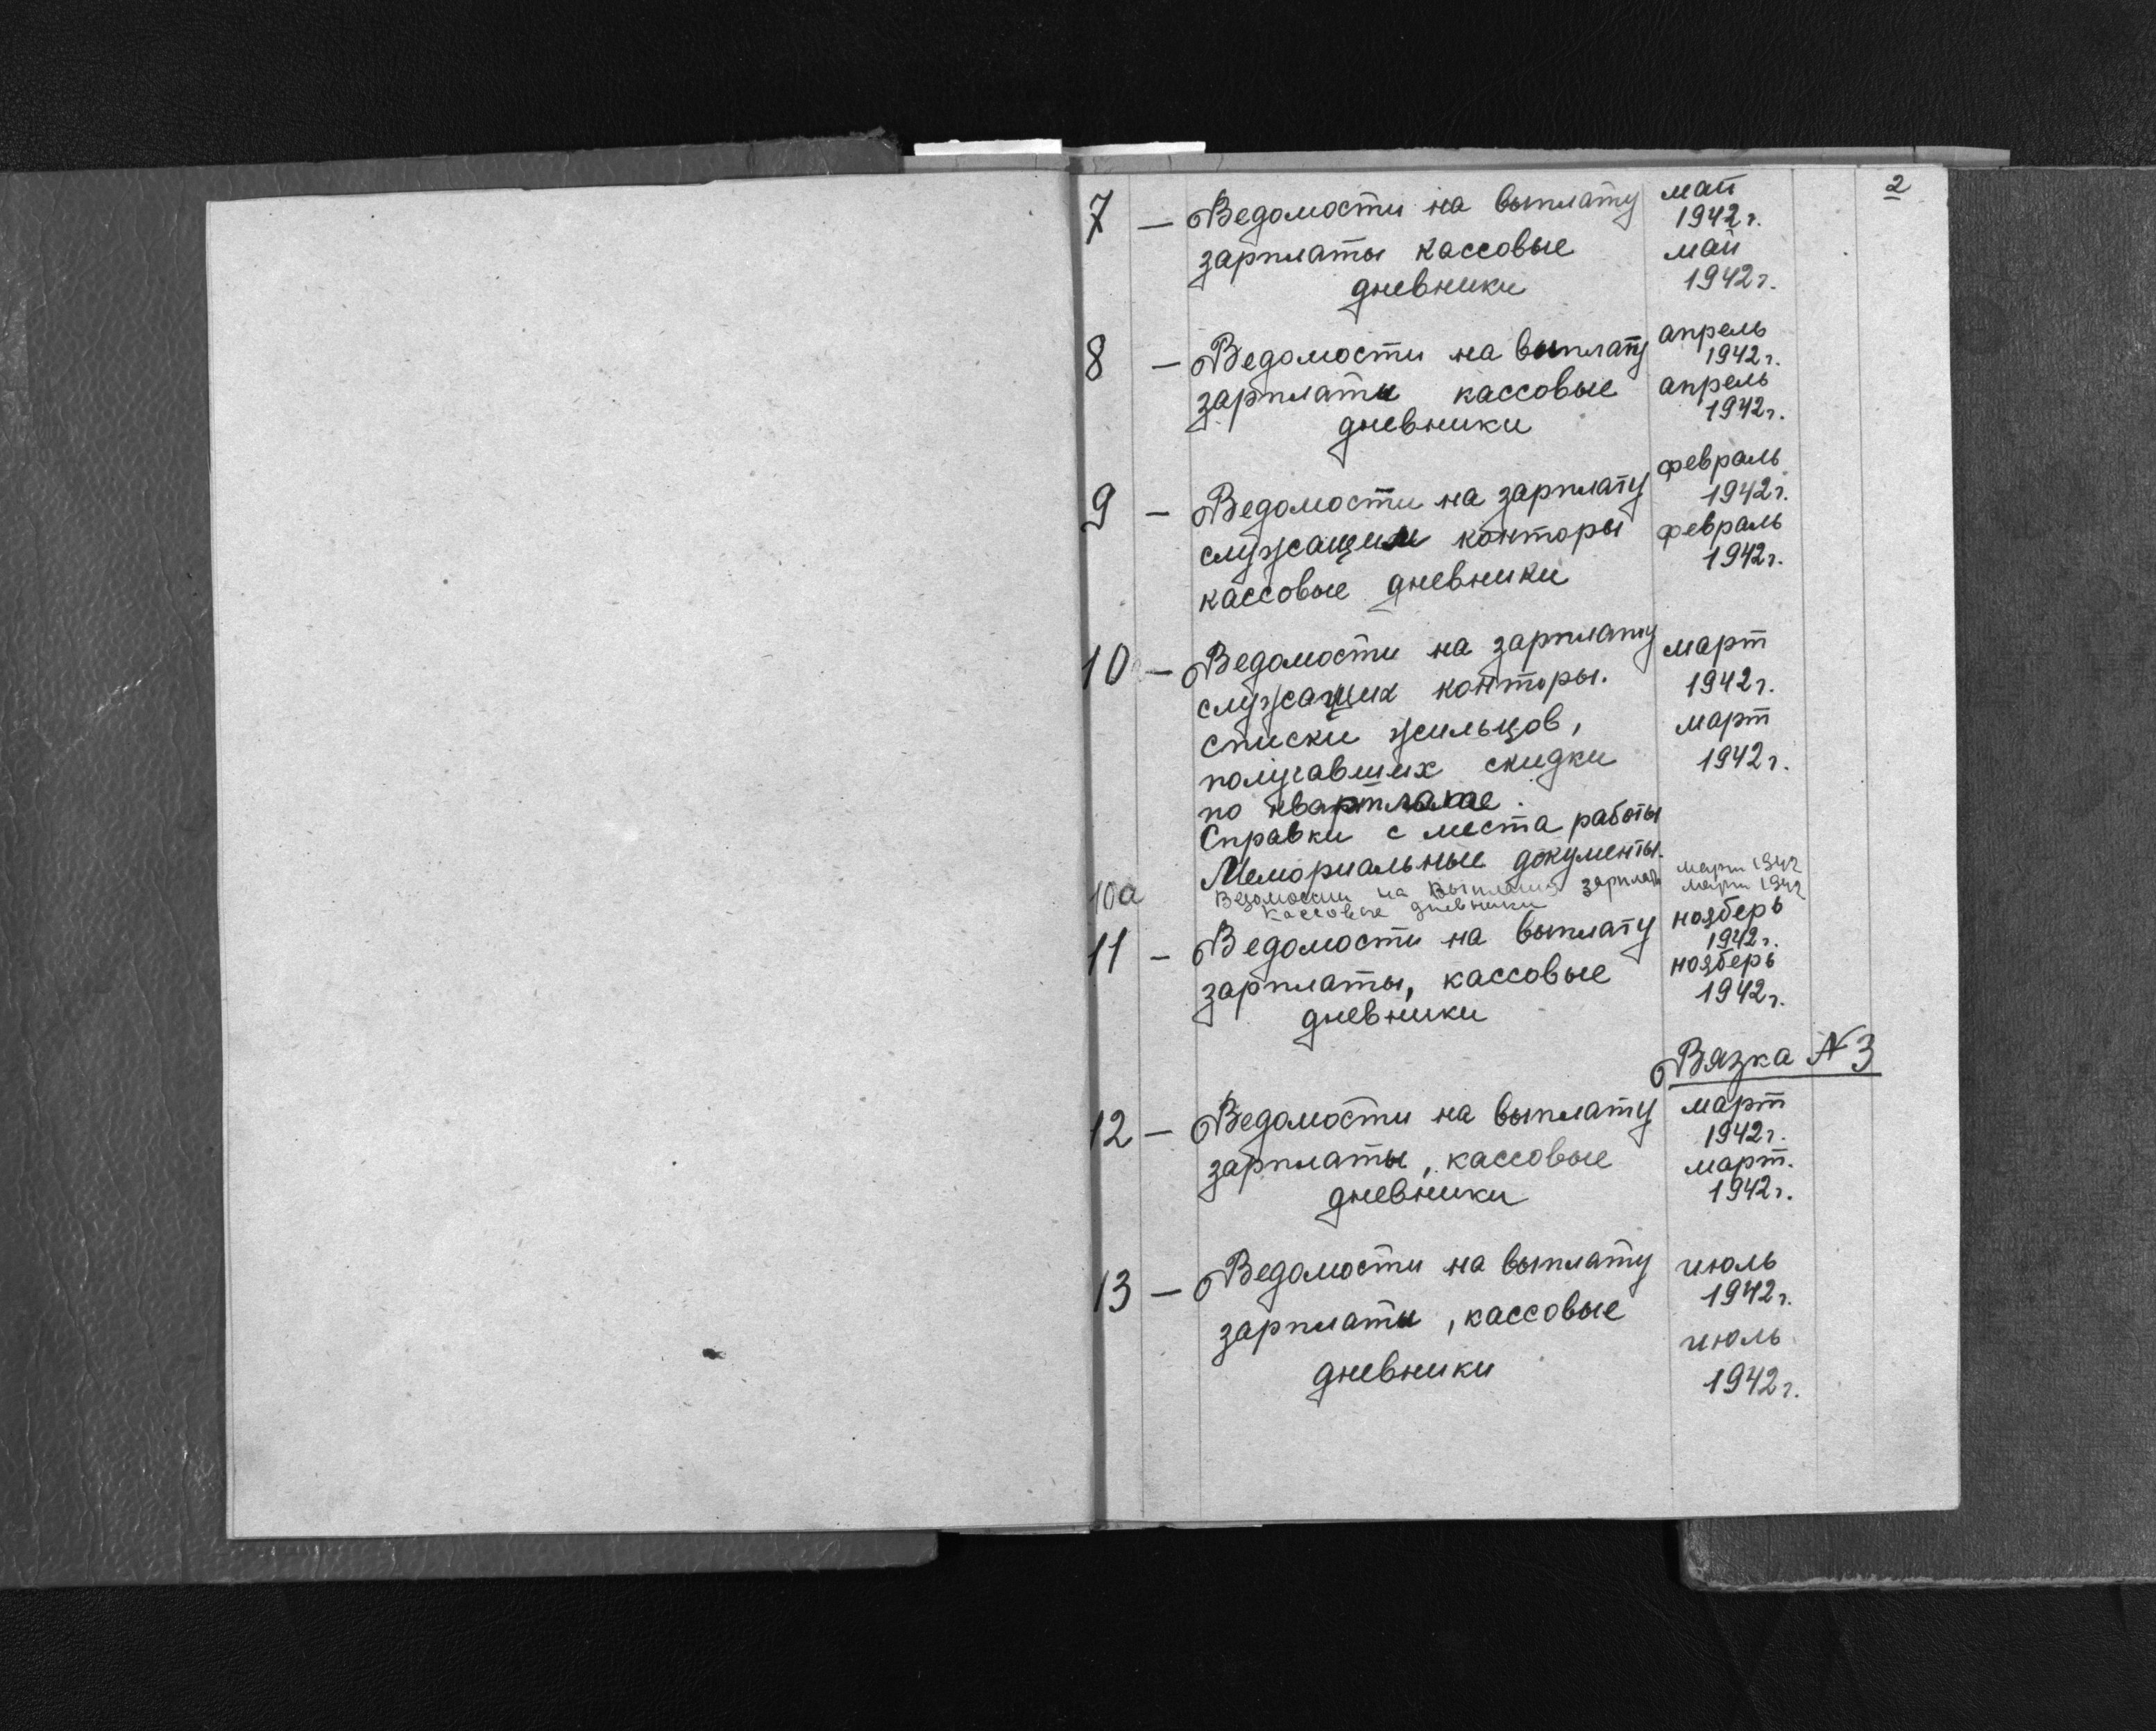 2
7 — Ведомости на выплату май
1942 г.
зарплаты кассовые май
дневники 1942 г.
8 — Ведомости на выплату апрель
1942 г.
зарплаты кассовые апрель
дневники 1942 г.
9 — Ведомости на зарплату февраль
1942 г.
служащим конторы февраль
кассовые дневники 1942 г.
10 — Ведомости на зарплату март
служащих конторы. 1942 г.
списки жильцов, март
получавших скидки 1942 г.
по квартплате.
Справки с места работы
Мемориальные документы.
10а Ведомости на выплату зарплаты март 1942
кассовые дневники март 1942
11 — Ведомости на выплату ноябрь
1942 г.
зарплаты, кассовые ноябрь
дневники 1942 г.
Вязка № 3
12 — Ведомости на выплату март
1942 г.
зарплаты, кассовые март.
дневники 1942 г.
13 — Ведомости на выплату июль
1942 г.
зарплаты, кассовые июль
дневники 1942 г.